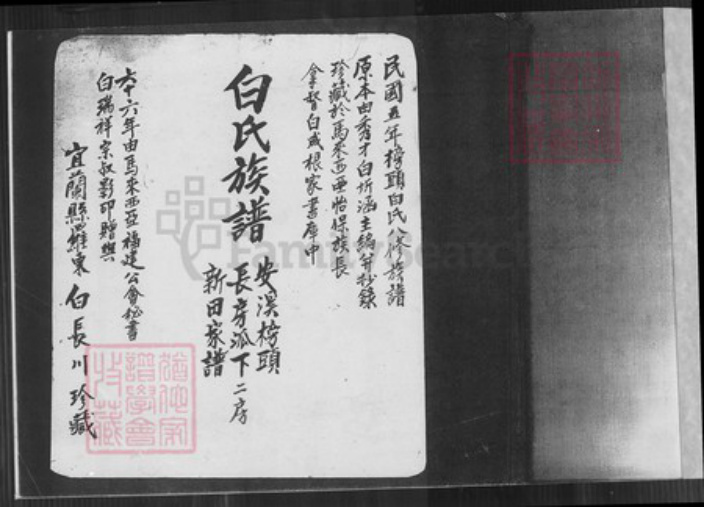 民國五年榜頭白氏八修族譜
原本由秀才白圻涵主編並抄錄
珍藏於馬來西亞怡保族長
拿督白成根家書庫中
白氏族譜
安溪榜頭
長房派下二房
新田家譜
六十六年由馬來西亞福建公會秘書
白瑞祥宗叔影印贈與
宜蘭縣羅東 白長川 珍藏
猶他家
譜學會
收藏
FamilySearch